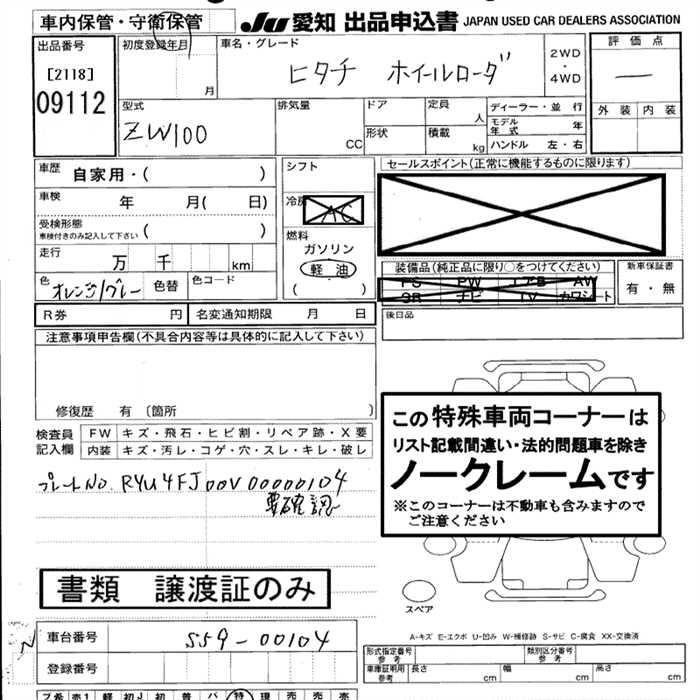 車内保管・守衛保管 JU 愛知 出品申込書 JAPAN USED CAR DEALERS ASSOCIATION
出品番号 初度登録年月 車名・グレード 評価点
[2118] 月 ヒタチ ホイールローダ 2WD・4WD —
09112 外装 内装
型式 排気量 ドア 定員 人 ディーラー・並行
ZW100 CC 形状 積載 kg モデル年式 年
ハンドル 左・右
車歴 自家用・( ) シフト セールスポイント(正常に機能するものに限ります)
車検 年 月( 日) 冷房 AC
受検形態 車検付きのみ記入して下さい ( ) 燃料
ガソリン
走行 万 千 km 軽油 装備品(純正品に限り○をつけてください) 新車保証書
色 オレンジ/グレー 色替 色コード ( ) PS PW エアB AW 有・無
SR ナビ TV カワシート
R券 円 名変通知期限 月 日 後日品
注意事項申告欄(不具合内容等は具体的に記入して下さい)
修復歴 有 〔箇所 〕
この特殊車両コーナーは
リスト記載間違い・法的問題車を除き
ノークレームです
※このコーナーは不動車も含みますので
ご注意ください
検査員記入欄 FW キズ・飛石・ヒビ割・リペア跡・X要
内装 キズ・汚レ・コゲ・穴・スレ・キレ・破レ
プレートNo. RYU4FJ00V00000104
要確認
書類 譲渡証のみ
スペア
A-キズ E-エクボ U-凹み W-補修跡 S-サビ C-腐食 XX-交換済
車台番号 SS9-00104
形式指定番号 参考 類別区分番号 参考
登録番号 車庫証明用参考 長さ cm 幅 cm 高さ cm